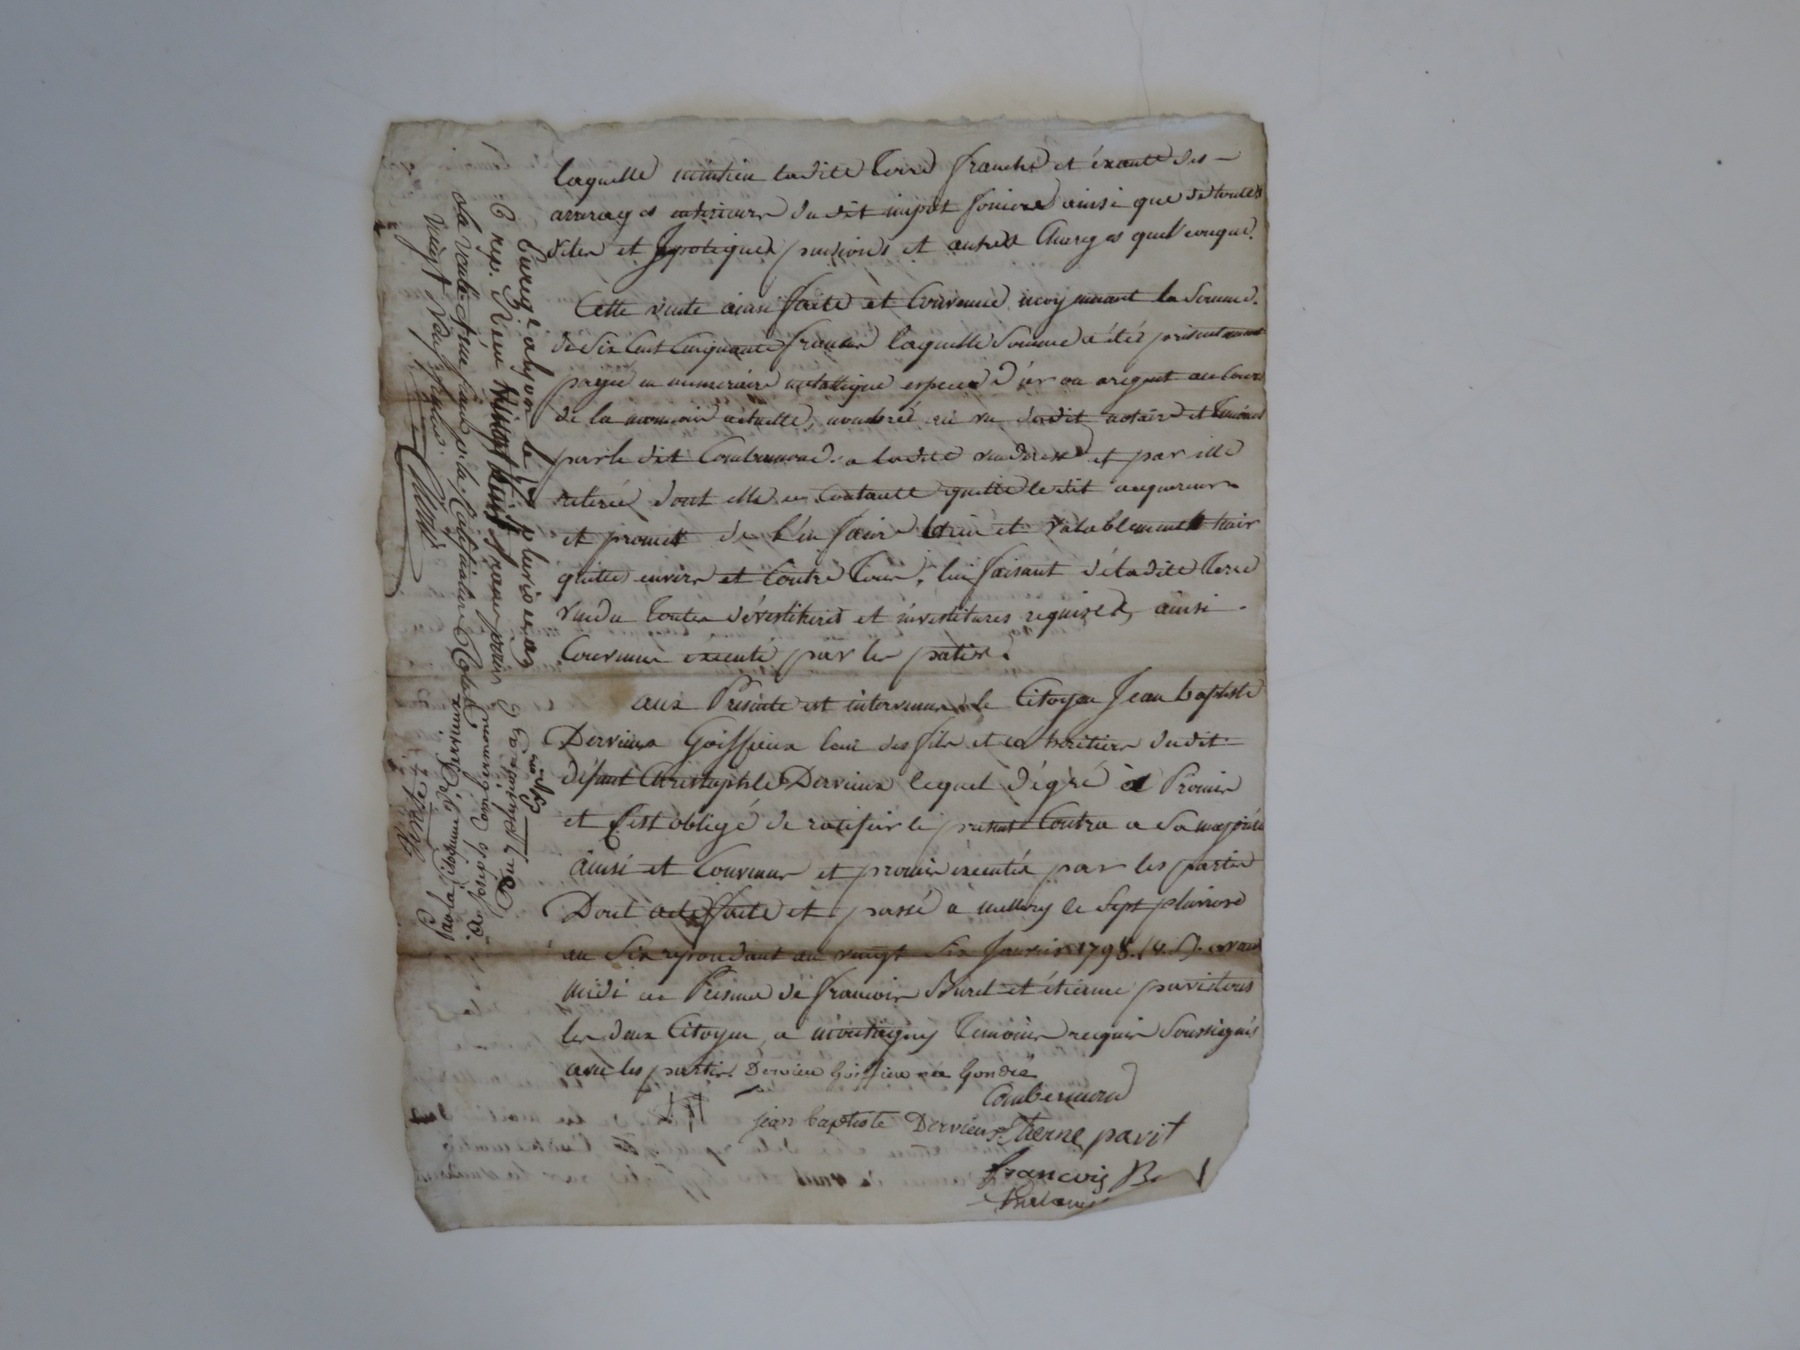 laquelle maintien ladite Terre franche et éxante des -
arrerages anterieurs dudit impot foncier ainsi que de toutes
dites et Hypotiques pensions et autres Charges quelconque.
Cette vente ainsi faite et Convenue moyennant la Somme
de Six Cent Cinquante francs laquelle Somme a étés présentement
payée en numeraire metallique especes d'or ou argent au Cour
de la monnoie actuelle, nombrée au vu dudit notaire et temoins
par le dit Combermond a ladite venderesse et par elle
retirée dont elle en Contante quitte le dit acquereur
et promet de l'en faire bien et valablement tenir
quitte envers et Contre Tous, lui faisant de ladite Terre
vendu toutes dévestitures et investitures requises, ainsi
Convenu executé par les parties.
aux Présente est intervenu le Citoyen Jean baptiste
Dervieux Goiffieux l'un des fils et co heritiers dudit
défunt Christophle Dervieux lequel dégré a Promis
et S'est obligé de ratifier le présent Contra a Sa majorité
ainsi et Convenu et promis éxécuter par les parties
Dont acte faite et passé a millery le Sept pluviose
an Six repondant au vingt Six Janvier 1798. (v. S.) avant
midi en Présence de françois Burel et étienne pavit tous
les deux Citoyen a montagny Temoins requis Soussignés
avec les parties. Dervieu Goiffieu née Gondié
Combermond
jean baptiste Dervieux Etienne pavit
françois
Enregé a lyon le pluviose an 6
rep. Reçu vingt six francs pour
la vente
vingt
De la présente vente
par la Citoyenne Dervieux
a Joseph Combermond